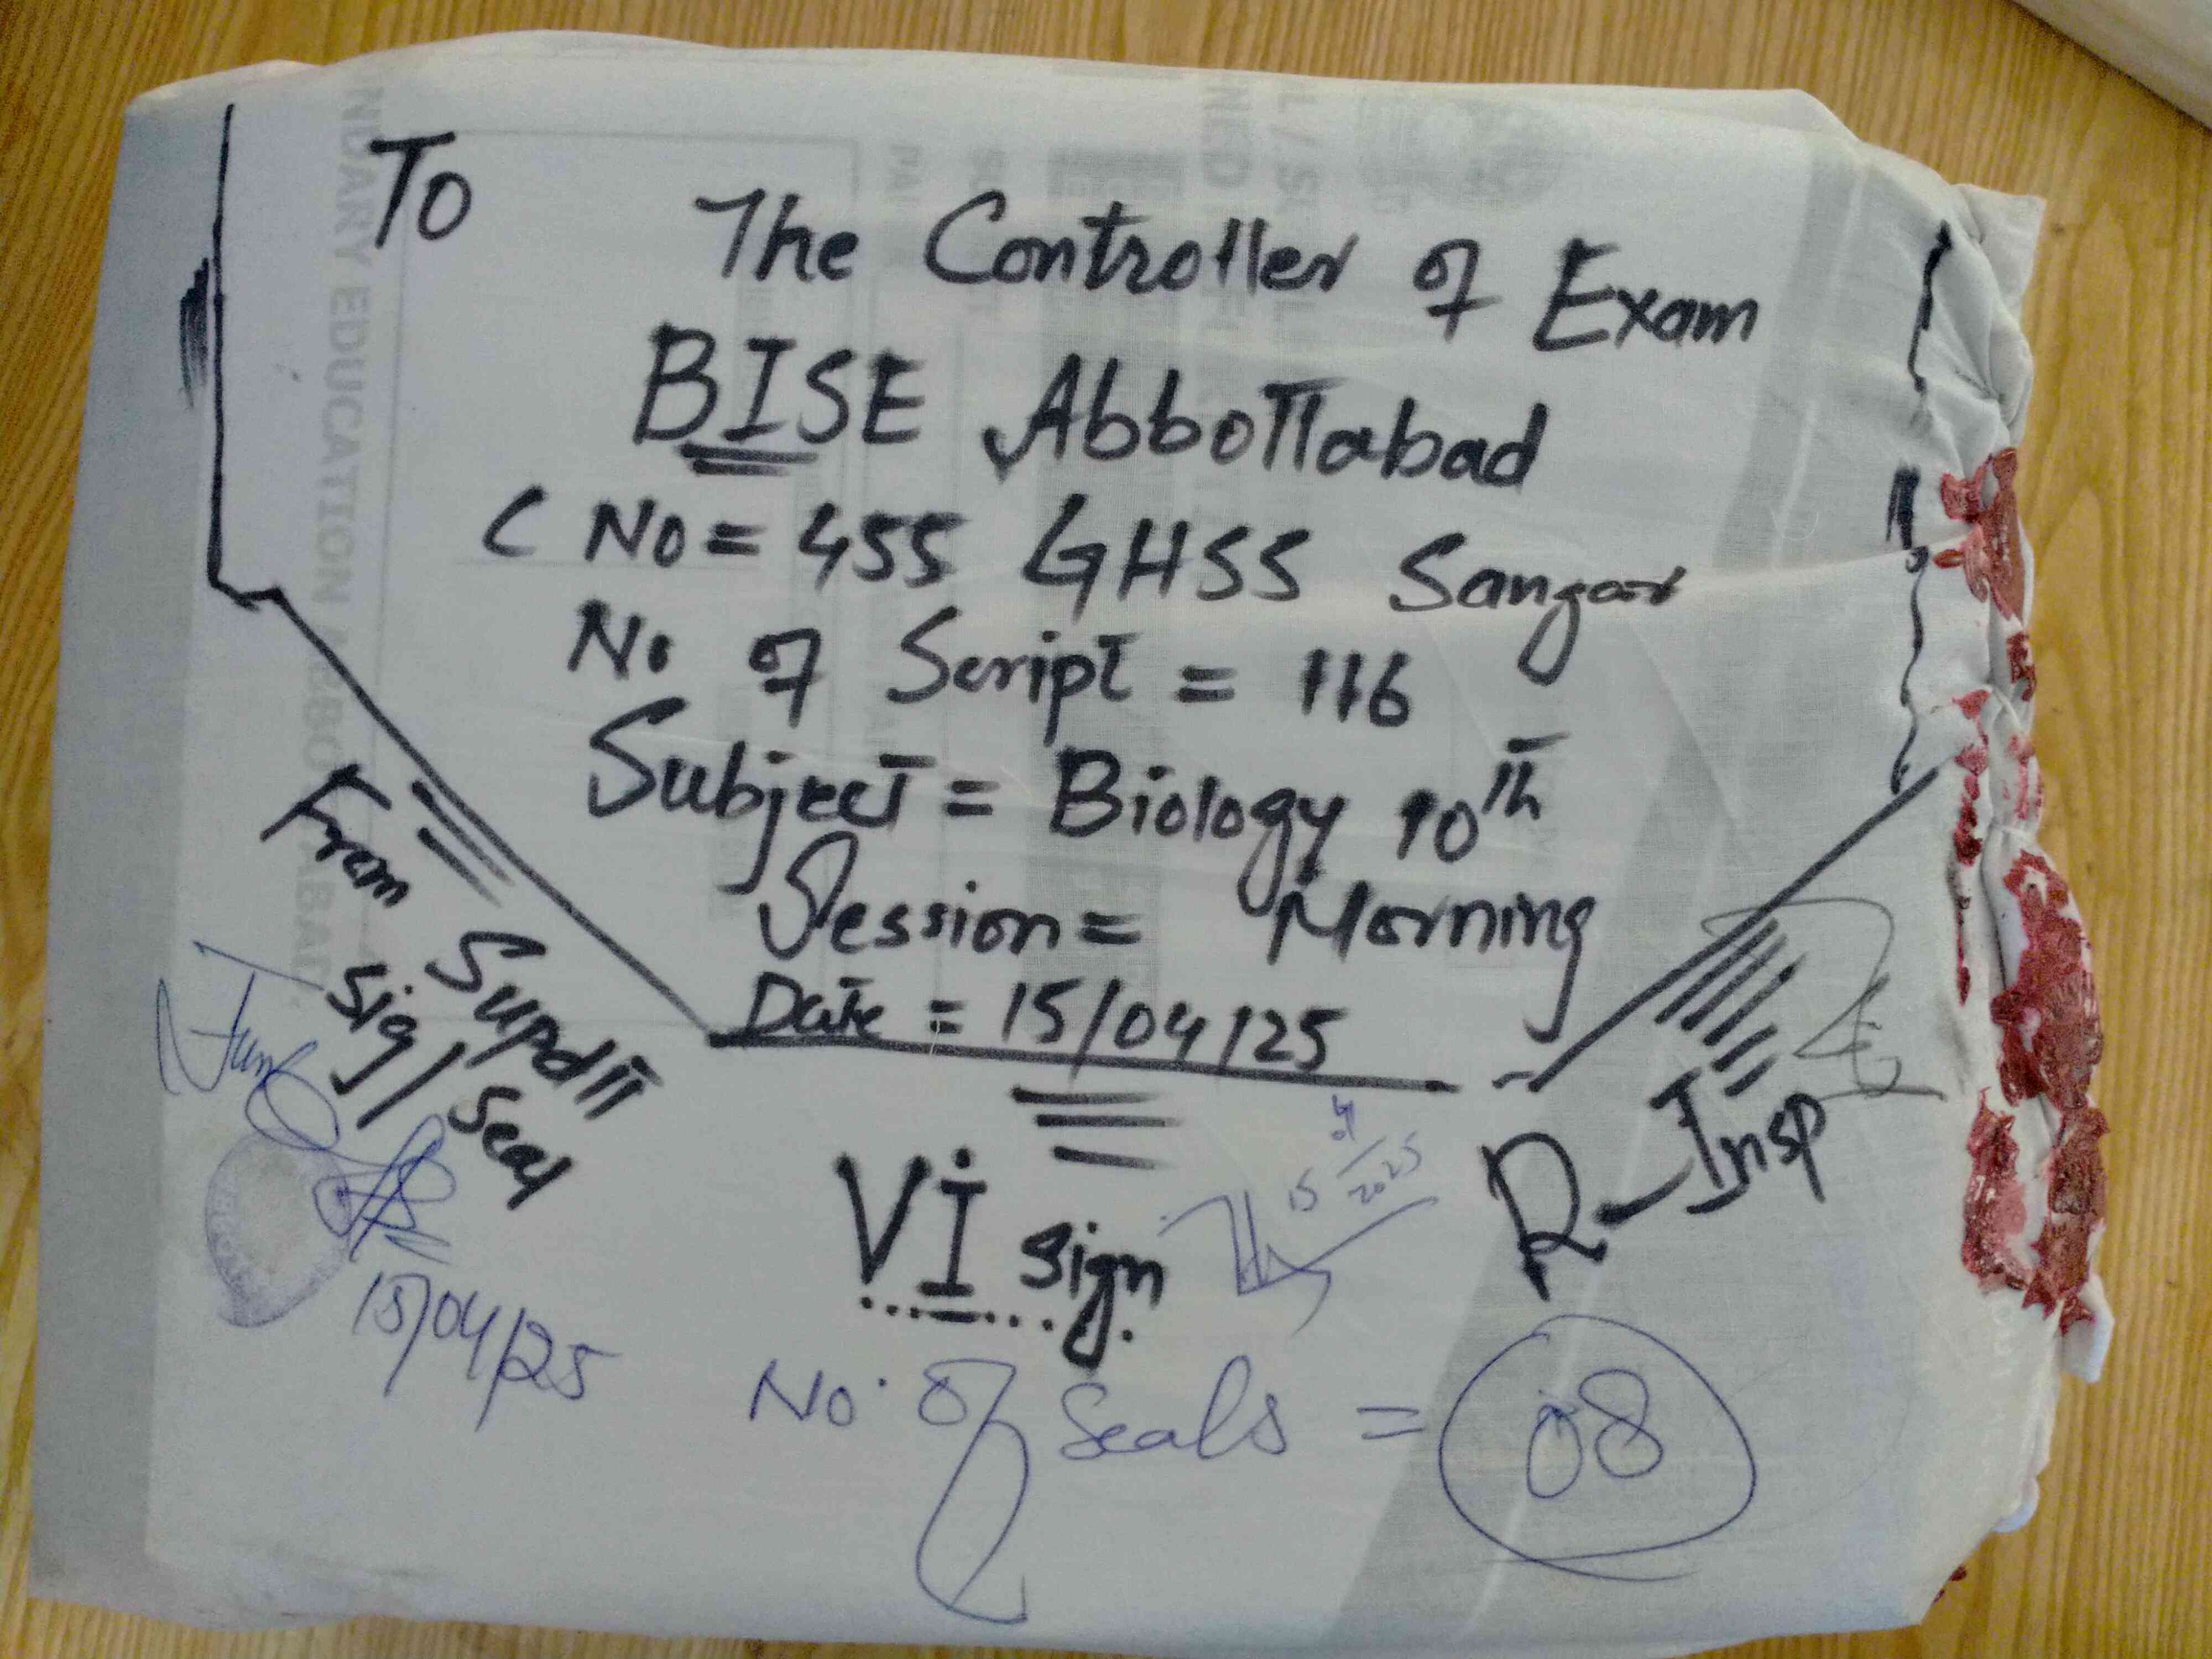 To
The Controller of Exam
BISE Abbottabad
C No = 455 GHSS Sangar
No of Script = 116
Subject = Biology 10th
Session = Morning
Date = 15/04/25
From Supdtt
Sig/Seal
15/04/25
VI Sign
15 04 2025
R-Insp
No. of Seals = 08
NDARY EDUCATION ABBOTTABAD